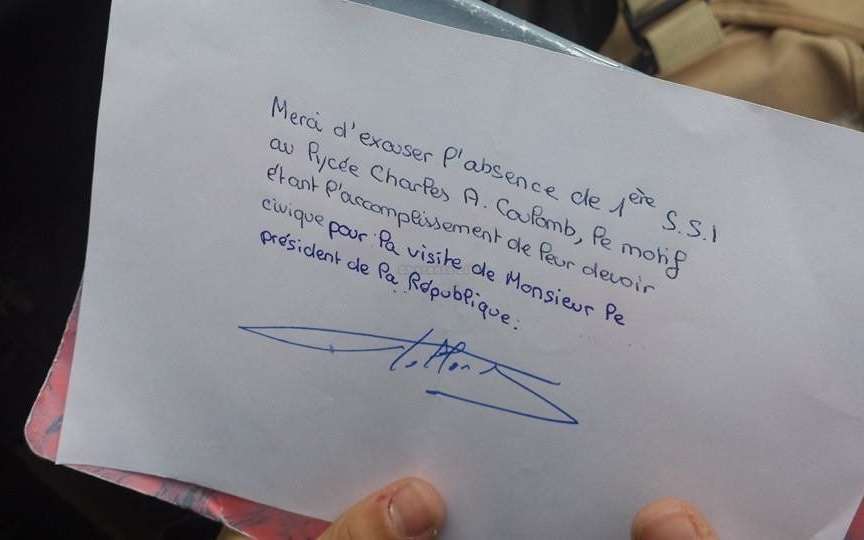 Merci d'excuser l'absence de 1ère S.S.I
au lycée Charles A. Coulomb, le motif
étant l'accomplissement de leur devoir
civique pour la visite de Monsieur le
président de la République.